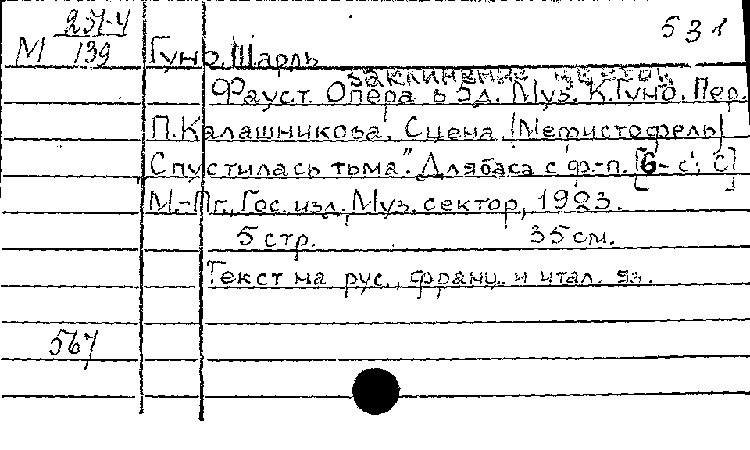 М 251-4/139
531
Гуно, Шарль
Заклинание цветов
Фауст. Опера в 5 д. Муз. К. Гуно. Пер.
П. Калашникова. Сцена /Мефистофель/
Спустилась тьма". Для баса с ф.-п. [G- c; C]
М.-Пг., Гос. изд., Муз. сектор, 1923.
5 стр. 35 см.
Текст на рус., франц. и итал. яз.
567